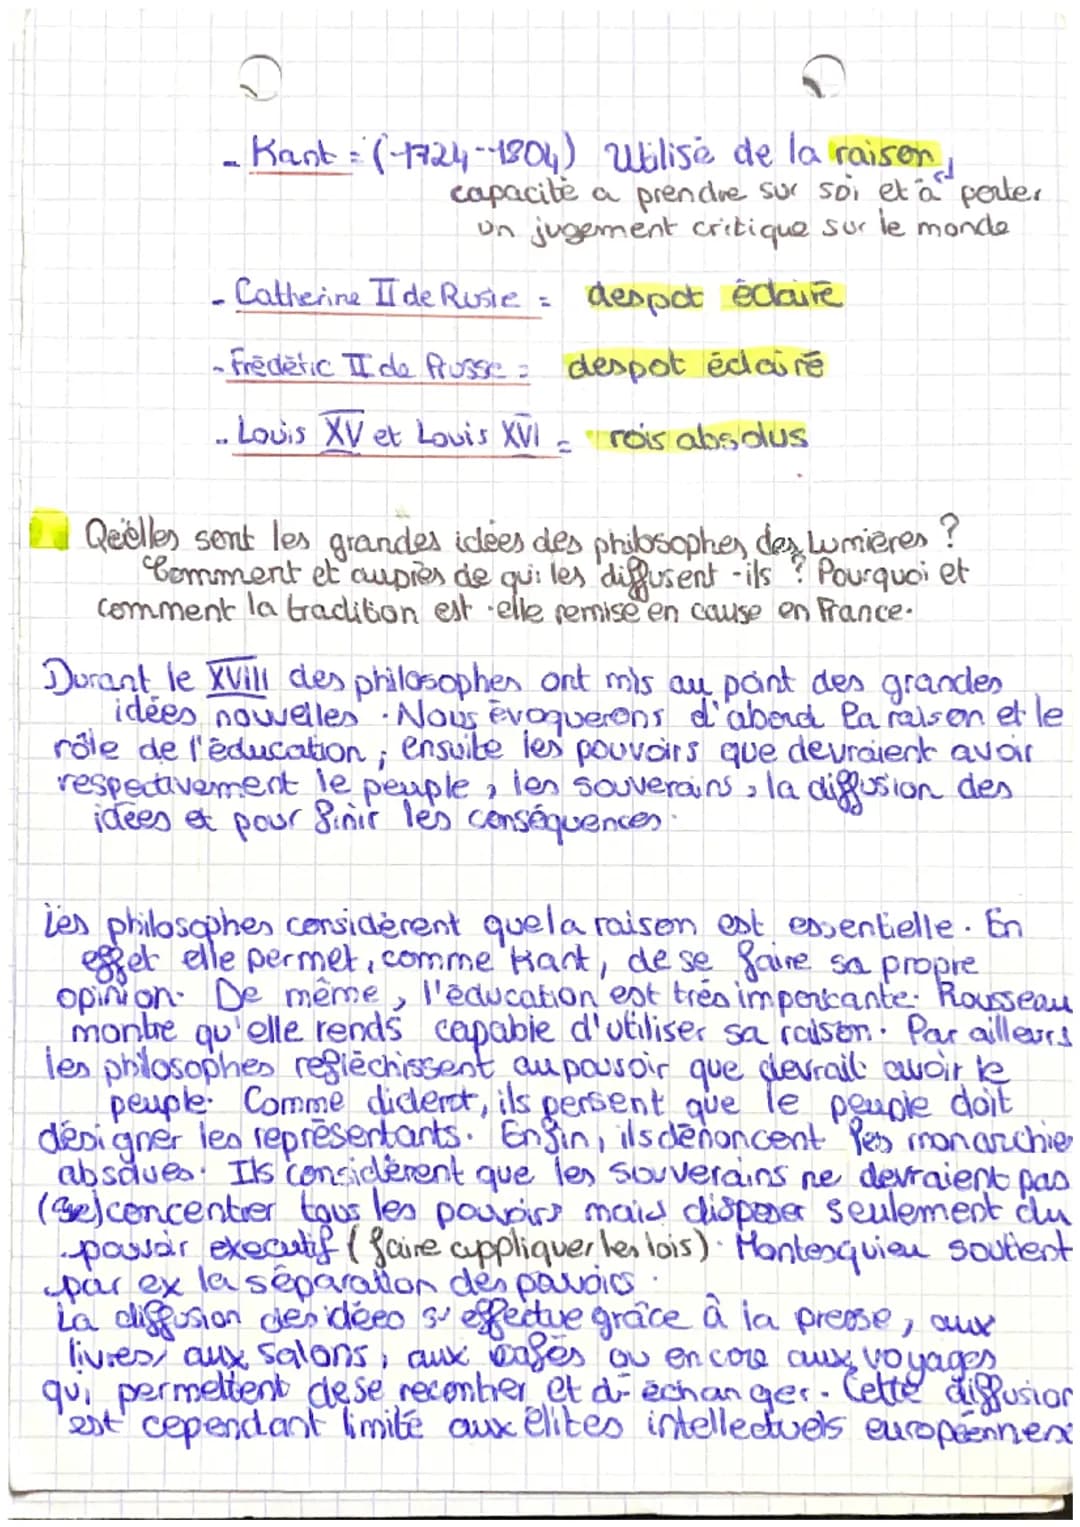 - Kant = (-1724--1804) Utilisé de la raison,
capacité a prendre sur soi et à porter
un jugement critique sur le monde
- Catherine II de Rusie = despot éclairé
- Frédéric II de Prusse = despot éclairé
- Louis XV et Louis XVI = rois absolus
Quelles sont les grandes idées des philosophes des Lumières ?
Comment et auprès de qui les diffusent-ils ? Pourquoi et
comment la tradition est-elle remise en cause en France.
Durant le XVIII des philosophes ont mis au point des grandes
idées nouvelles. Nous évoquerons d'abord la raison et le
rôle de l'éducation ; ensuite les pouvoirs que devraient avoir
respectivement le peuple, les souverains, la diffusion des
idées et pour finir les conséquences.
Les philosophes considèrent que la raison est essentielle. En
effet elle permet, comme Kant, de se faire sa propre
opinion. De même, l'éducation est très importante. Rousseau
montre qu'elle rends capable d'utiliser sa raison. Par ailleurs
les philosophes refléchissent au pouvoir que devrait avoir le
peuple. Comme diderot, ils pensent que le peuple doit
désigner les représentants. Enfin, ils dénoncent les monarchies
absolues. Ils considèrent que les souverains ne devraient pas
(se) concentrer tous les pouvoirs mais disposer seulement du
pouvoir executif (faire appliquer les lois). Montesquieu soutient
par ex la séparation des pouvoirs.
La diffusion des idées s'effectue grâce à la presse, aux
livres, aux salons, aux cafés ou encore aux voyages
qui permettent de se recontrer et d'échanger. Cette diffusion
est cependant limité aux élites intellectuels européennes